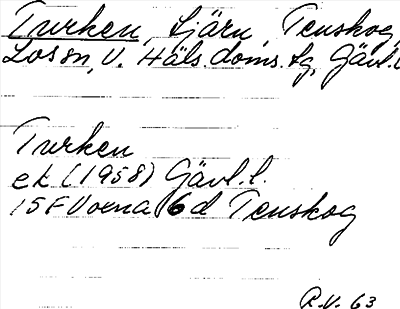 Turken, tjärn, Tenskog,
Los sn, V. Häls. doms. tg, Gävl.l
Turken
ek (1958) Gävl.l.
15F Voxna 6d Tenskog
R.V. 63